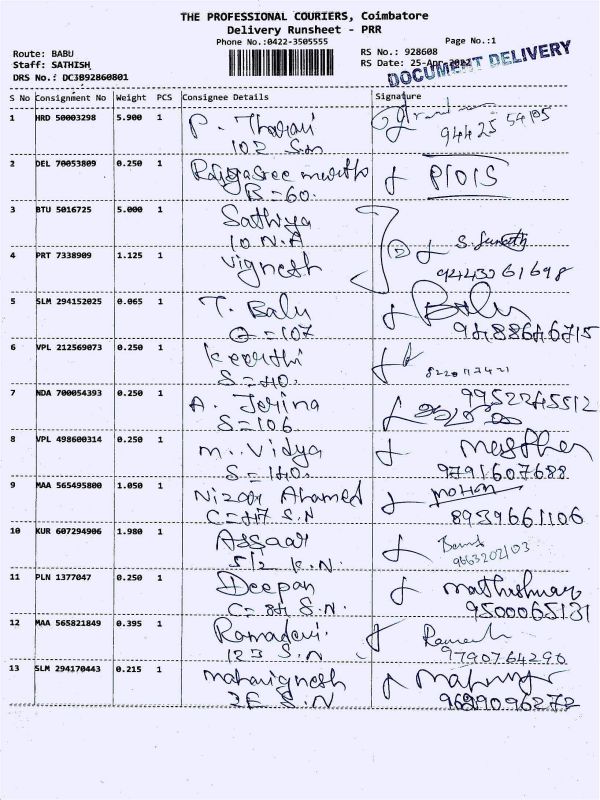 THE PROFESSIONAL COURIERS, Coimbatore
Delivery Runsheet - PRR
Phone No.:0422-3505555 Page No.:1
Route: BABU RS No.: 928608
Staff: SATHISH RS Date: 25-Apr-2022
DRS No.: DC3B92860801 DOCUMENT DELIVERY
S No Consignment No Weight PCS Consignee Details Signature
1 HRD 50003298 5.900 1 P.
102 S.N
2 DEL 70053809 0.250 1 Rajyasree
B=60.
3 BTU 5016725 5.000 1 Sathiya
10 N.A
4 PRT 7338909 1.125 1 Vignesh 2
9444326 1698
5 SLM 294152025 0.065 1 T. Balu Balu
=107 9488646715
6 VPL 212569073 0.250 1 Keerthi
S=40.
7 NDA 700054393 0.250 1 A. Jerina 9952245512
S=106
8 VPL 498600314 0.250 1 M. Vidya
S=140. 9791607688
9 MAA 565495800 1.050 1 Nizar Ahamed
C=47 S.N 8939661106
10 KUR 607294906 1.980 1 Assaar
5/2 K.N. 9663202103
11 PLN 1377047 0.250 1 Deepan
C=84 S.N. 9500065131
12 MAA 565821849 0.395 1 Ramadevi. Ramesh
123 S.N 9790764290
13 SLM 294170443 0.215 1 Mahavignesh
2E S.N